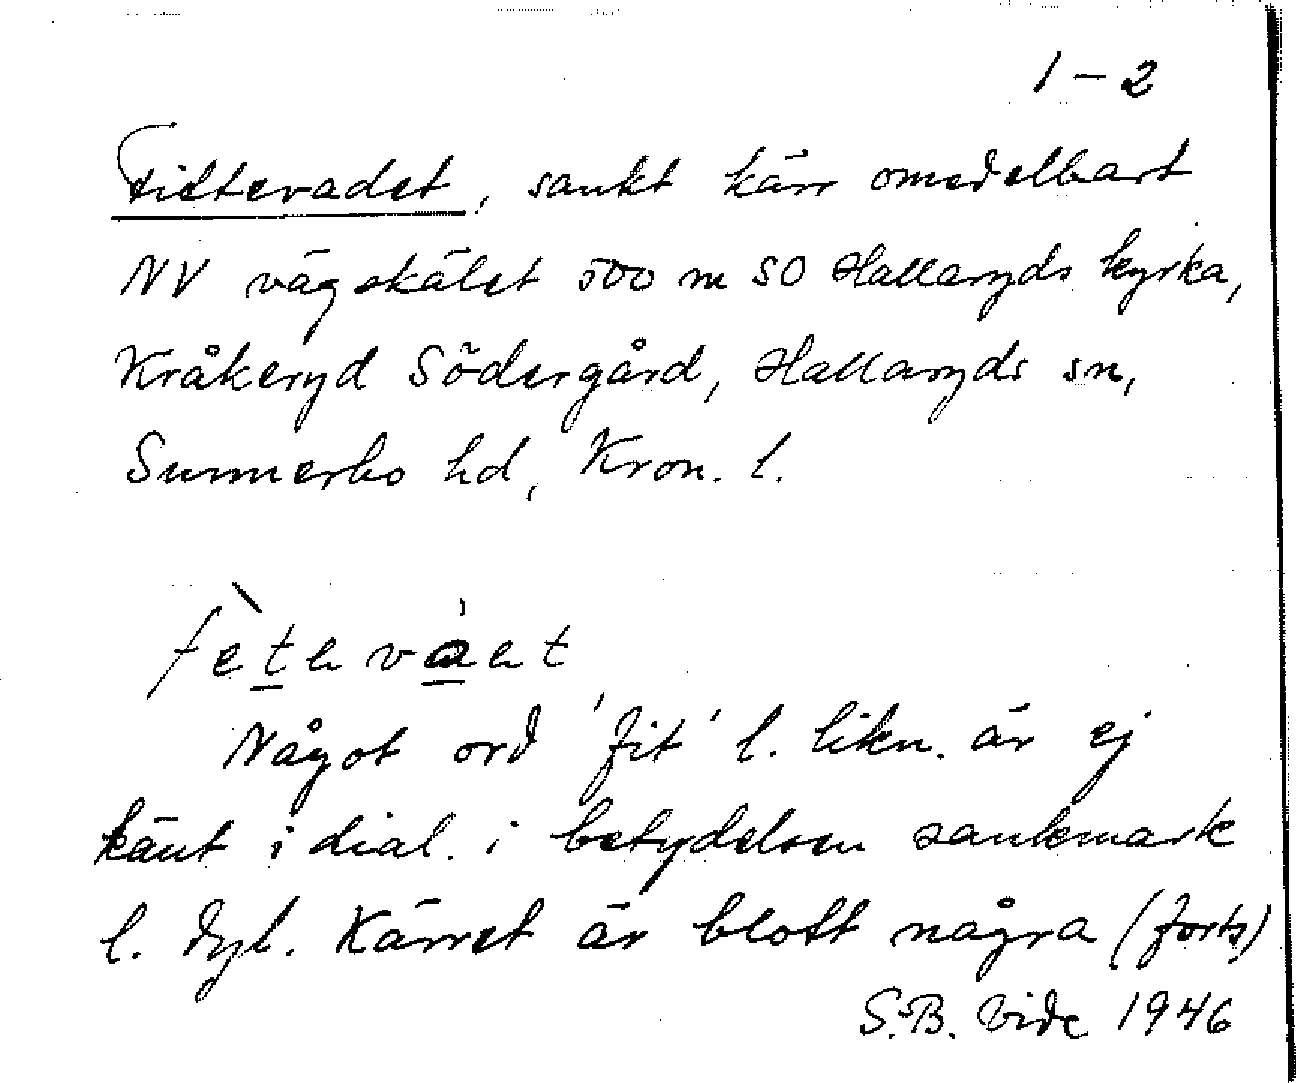 1 – 2
Fittevadet, sankt kärr omedelbart
NV vägskälet 500 m SO Hallaryds kyrka,
Kråkeryd Södergård, Hallaryds sn,
Sunnerbo hd, Kron. l.
fètevàet
Något ord 'fit' l. likn. är ej
känt i dial. i betydelsen sankmark
l. dyl. Kärret är blott några (forts)
S.B. Vide 1946